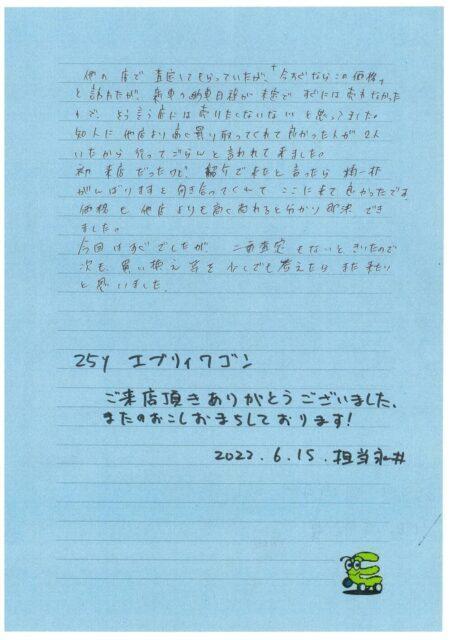 他の店で査定してもらっていたが、「今すぐならこの価格」
と言われたが、新車の納車日程が未定ですぐには売れなかった
ので、そう言う店には売りたくないな、と思ってました。
知人に他店より高く買い取ってくれて良かった人が2人
いたから行ってごらんと言われて来ました。
初来店だったけど、紹介で来たと言ったら精一杯
がんばりますと向き合ってくれてここに来て良かったです。
価格も他店よりも高く売れると分かり即決でき
ました。
今回はすぐでしたが、二重査定もないときいたので
次も、買い換え等を少しでも考えたらまた来たい
と思いました。
25y エブリィワゴン
ご来店頂きありがとうございました、
またのおこしおまちしております!
2022.6.15.担当永井